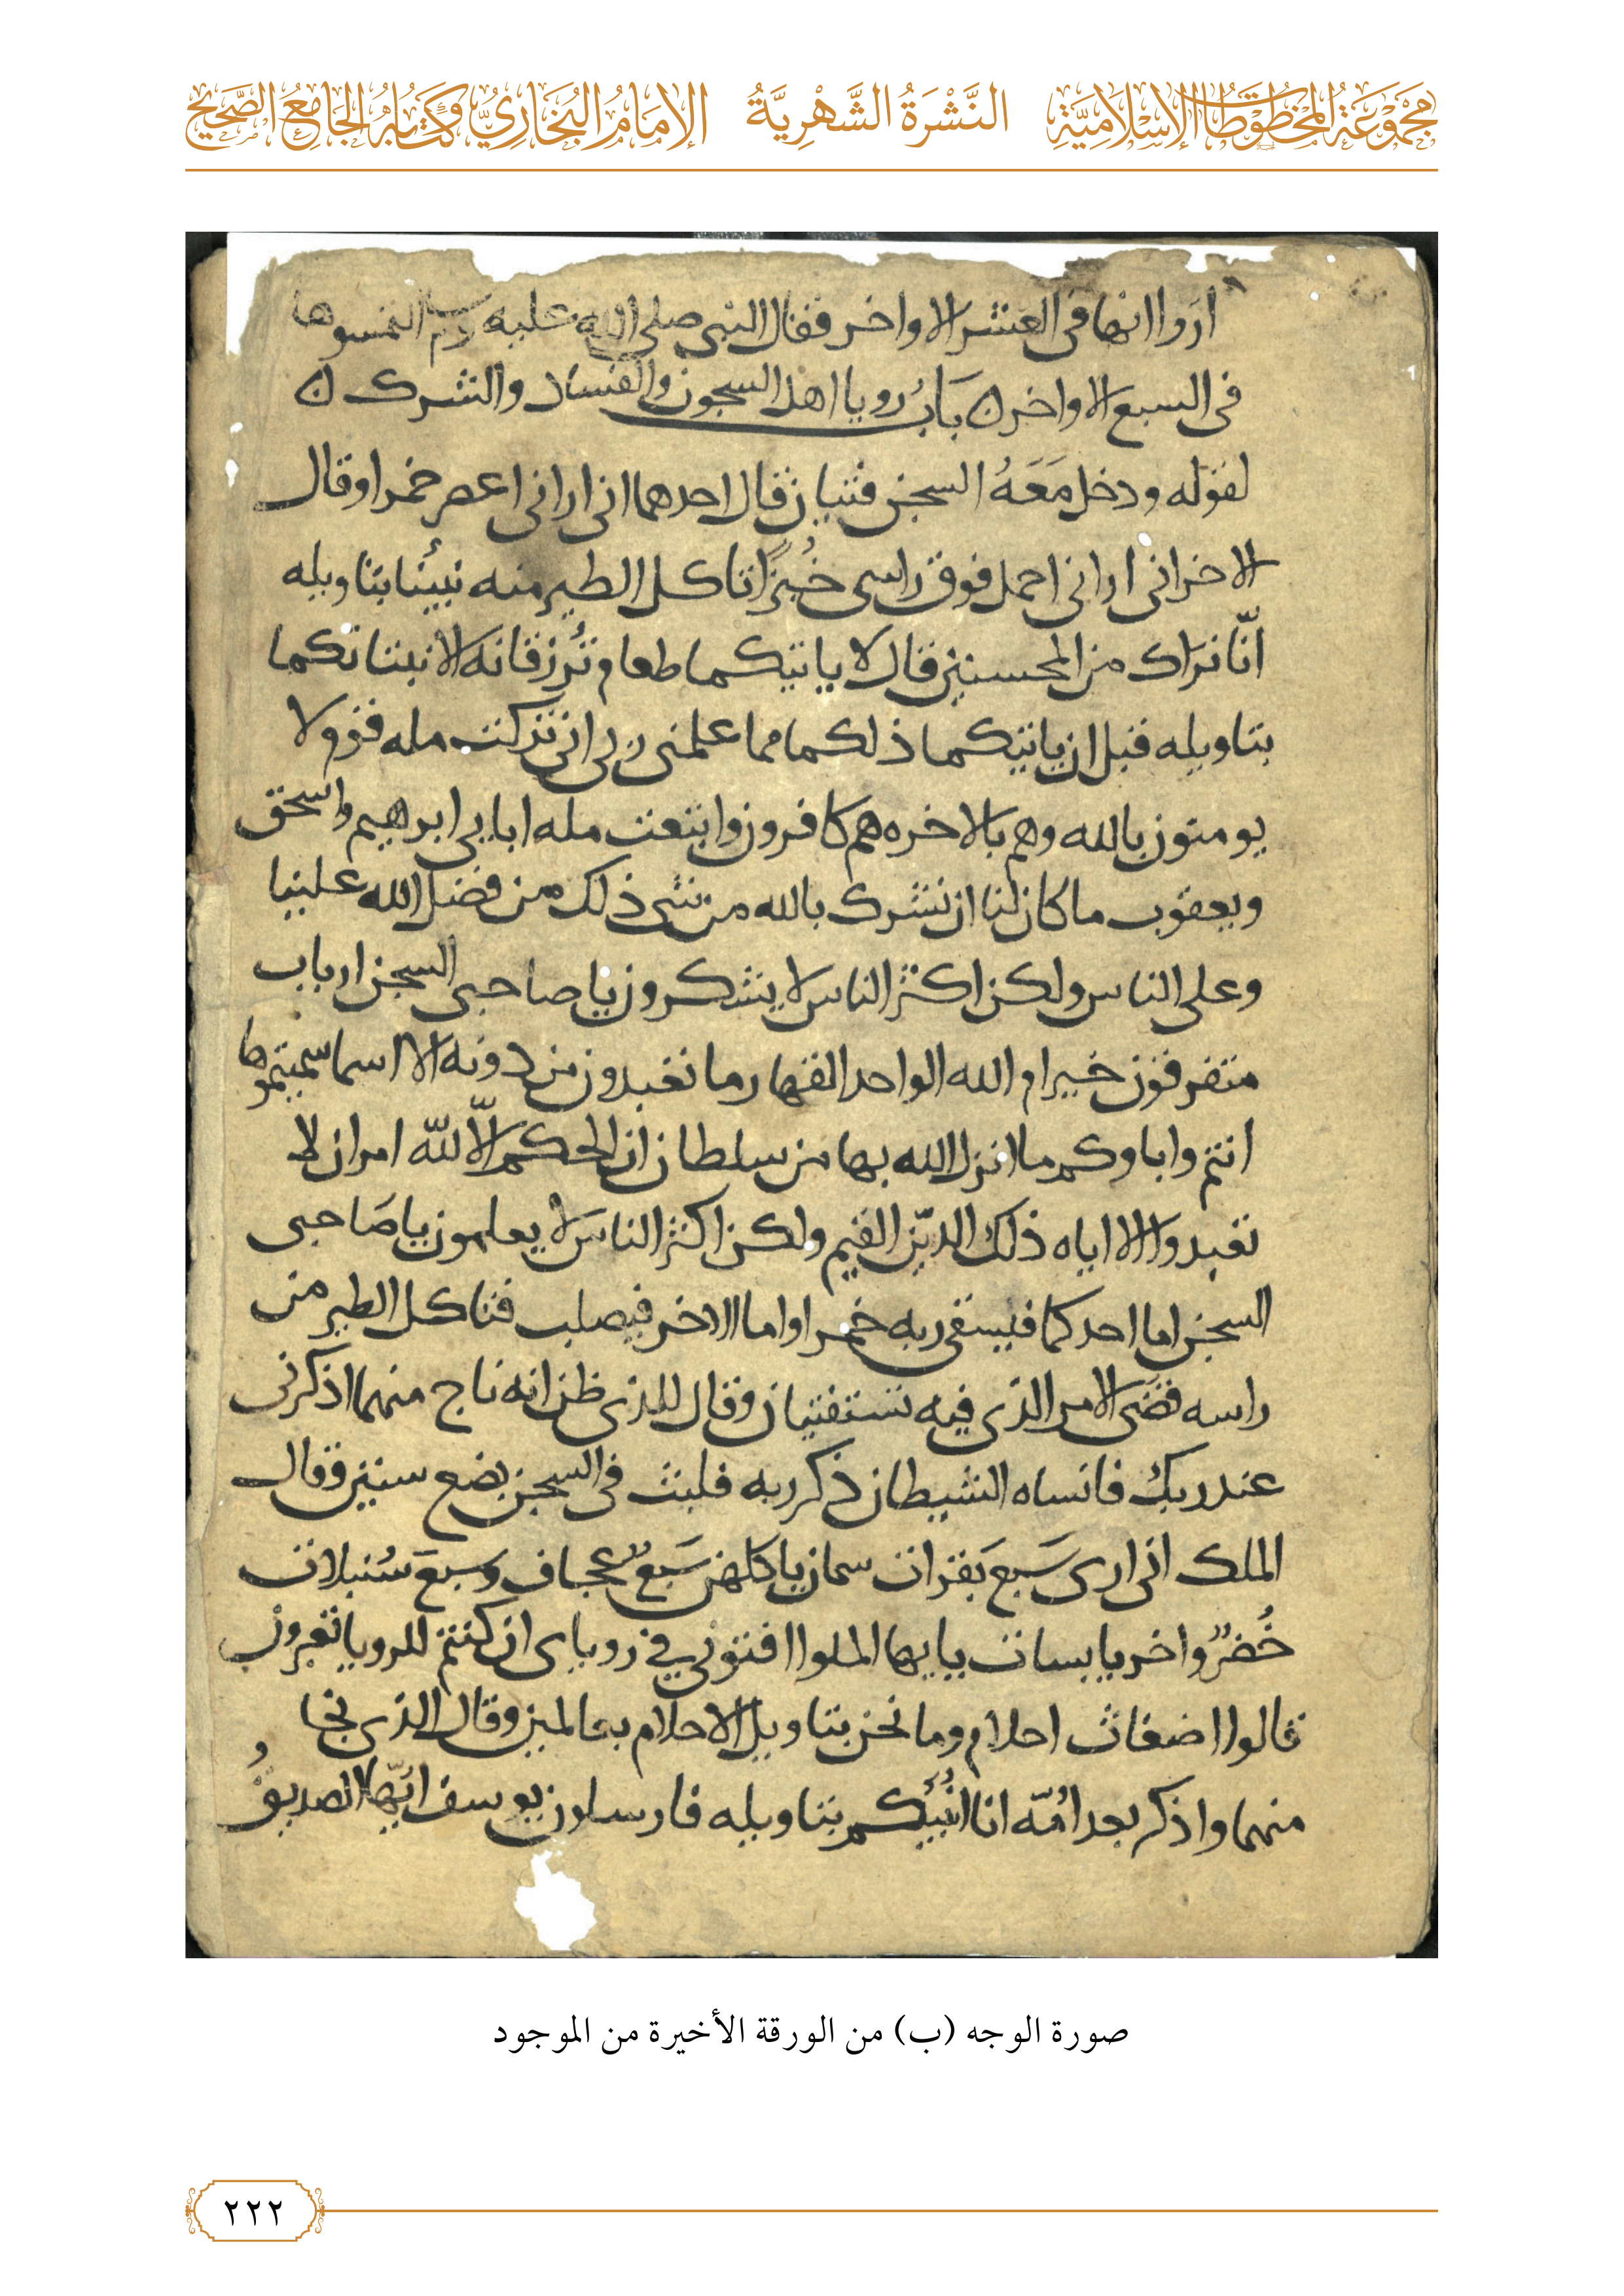 مَجْمُوعَةُ المَخْطُوطَاتِ الإِسْلَامِيَّةِ النَّشْرَةُ الشَّهْرِيَّةُ الإِمَامُ البُخَارِيُّ وَكِتَابُهُ الجَامِعُ الصَّحِيحُ
اروا انها فى العشر الاواخر فقال النبى صلى الله عليه التمسوها
فى السبع الاواخر ن بَابُ رويا اهل السجون والفساد والشرك ن
لقوله ودخل مَعَهُ السجن فتيان قال احدهما انى ارانى اعصر خمرا وقال
الاخر انى ارانى احمل فوق راسى خُبزًا تاكل الطير منه نبئنا بتاويله
انّا نراك من المحسنين قال لا ياتيكما طعام تُرزقانه الا نبئاتكما
بتاويله قبل ان ياتيكما ذلكما مما علمنى ربى انى تركت مله قوم لا
يومنون بالله وهم بالاخره هم كافرون واتبعت مله ابايى ابرهيم واسحق
ويعقوب ما كان لنا ان نشرك بالله من شى ذلك من فضل الله علينا
وعلى الناس ولكن اكثر الناس لا يشكرون يا صاحبى السجن ارباب
متفرقون خير ام الله الواحد القهار ما تعبدون من دونه الا اسما سميتموها
انتم واباوكم ما انزل الله بها من سلطان ان الحكم الّا للّه امر ان لا
تعبدوا الا اياه ذلك الدّين القيم ولكن اكثر الناسَ لا يعلمون يا صَاحبى
السجن اما احدكما فيسقى ربه خمرا واما الاخر فيصلب فتاكل الطير من
راسه قضى الامر الذى فيه تستفتيان وقال للذى ظن انه ناج منهما اذكرنى
عند ربك فانساه الشيطان ذكر ربه فلبث فى السجن بضع سنين وقال
الملك انى ارى سَبع بَقرات سمان ياكلهن سَبعٌ عجاف وسبعَ سُنبلات
خُضرٍ واخر يابسات يايها الملوا افتونى في روياى ان كنتم للرويا تعبرون
قالوا اضغاث احلام وما نحن بتاويل الاحلام بعالمين وقال الذى نجا
منهما واذكر بعد امّه انا انُبئُكم بتاويله فارسلون يوسف ايّها الصديقُ
صورة الوجه (ب) من الورقة الأخيرة من الموجود
٢٢٢